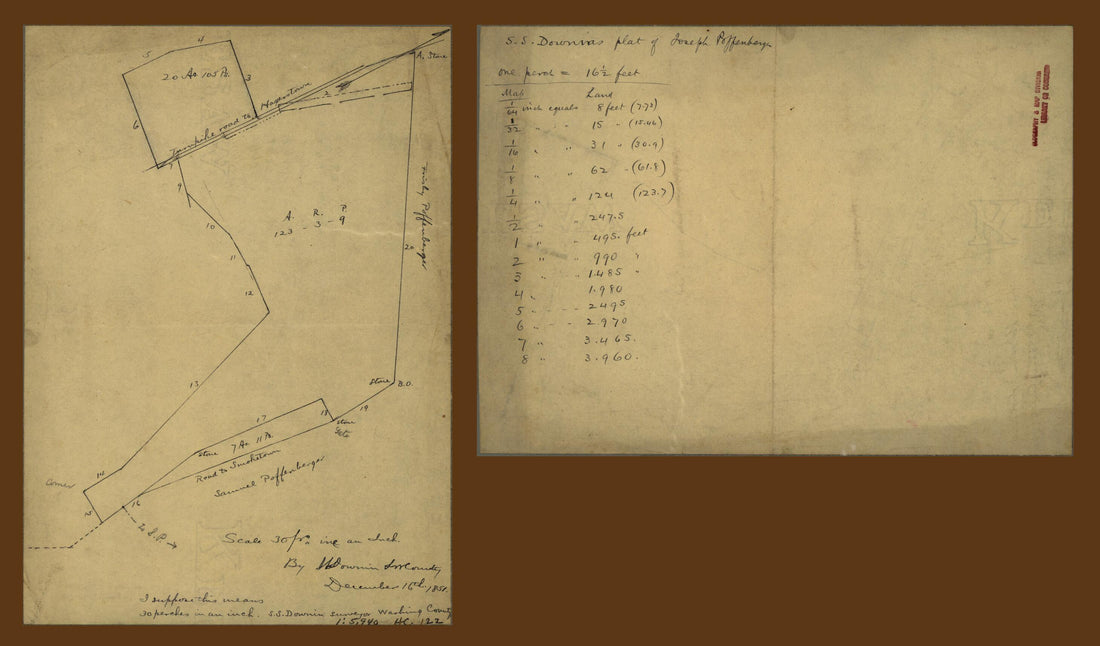 4
5
20 As 105 Ps.
3
A. Stone
2
Turnpike road to Hagerstown
6
7
9
Poffenberger
A. R. P.
123 - 3 - 9
10
11
20
12
13
Stone B.O.
19
18
17
Stone
Gate
Stone 7 As 11 Ps.
Road to Smoketown
Samuel Poffenberger
14
Corner
15
16
to S.P. →
Scale 30 in an inch
By Downin County
December 16th, 1851.
I suppose this means
30 perches in an inch. S.S. Downin surveyor Washing County
1:5,940 HC. 122
S.S. Downins plat of Joseph Poffenberger
one perch = 16½ feet
Map Land
1/64 inch equals 8 feet (7.72)
1/32 " " 15 " (15.46)
1/16 " " 31 " (30.9)
1/8 " " 62 " (61.8)
1/4 " " 124 (123.7)
1/2 " " 247.5
1 " " 495. feet
2 " " 990 "
3 " " 1.485 "
4 " 1.980
5 " 2495
6 " 2.970
7 " 3.465.
8 " 3.960.